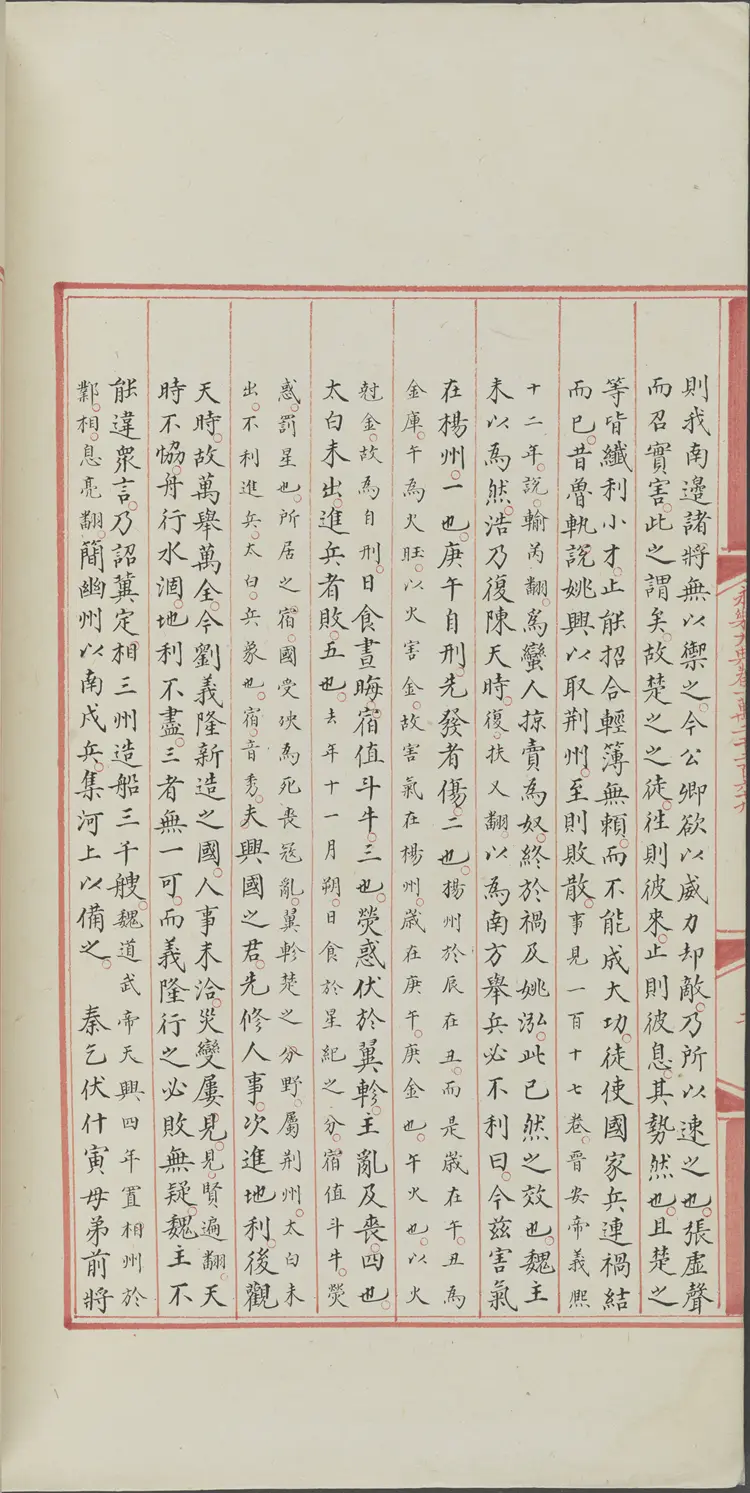 永樂大典卷一萬二千
則我南邊諸將無以禦之。今公卿欲以威力却敵。乃所以速之也。張虛聲
而召實害。此之謂矣。故楚之之徒。往則彼來。止則彼息。其勢然也。且楚之
等皆纖利小才。止能招合輕簿無賴。而不能成大功。徒使國家兵連禍結
而已。昔魯軌說姚興以取荆州。至則敗散。事見一百十七卷。晋安帝義熙
十二年。說。輸芮翻。為蠻人掠賣為奴。終於禍及姚泓。此已然之效也。魏主
未以為然。浩乃復陳天時。復。扶又翻。以為南方舉兵必不利曰。今兹害氣
在楊州。一也。庚午自刑。先發者傷。二也。楊州於辰在丑。而是歲在午。丑為
金庫。午為火旺。以火害金。故害氣在楊州。歲在庚午。庚金也。午火也。以火
尅金。故為自刑。日食晝晦。宿值斗牛。三也。熒惑伏於翼軫。主亂及喪。四也。
太白未出。進兵者敗。五也。去年十一月朔。日食於星紀之分。宿值斗牛。熒
惑。罰星也。所居之宿。國受殃為死喪寇亂。翼軫楚之分野。屬荆州。太白未
出。不利進兵。太白。兵象也。宿。音秀。夫興國之君。先修人事。次進地利。後觀
天時。故萬舉萬全。今劉義隆新造之國。人事未洽。災變屢見。見。賢遍翻。天
時不恊。舟行水涸。地利不盡。三者無一可。而義隆行之必敗無疑。魏主不
能違衆言。乃詔冀定相三州造船三千艘。魏道武帝天興四年置相州於
鄴。相。息亮翻。簡幽州以南戍兵。集河上以備之。 秦乞伏什寅母弟前將